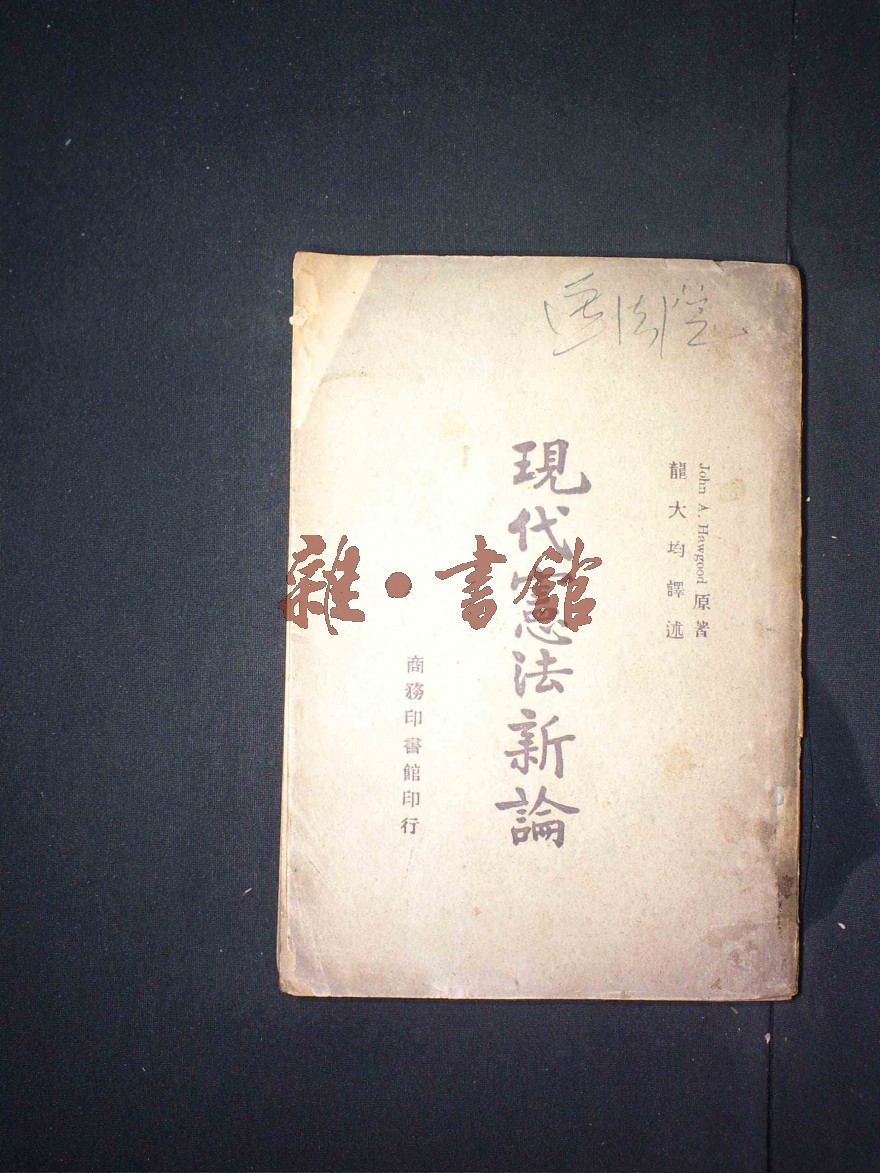 John A. Hawgood 原著
龍大均譯述
現代憲法新論
商務印書館印行
雜·書館